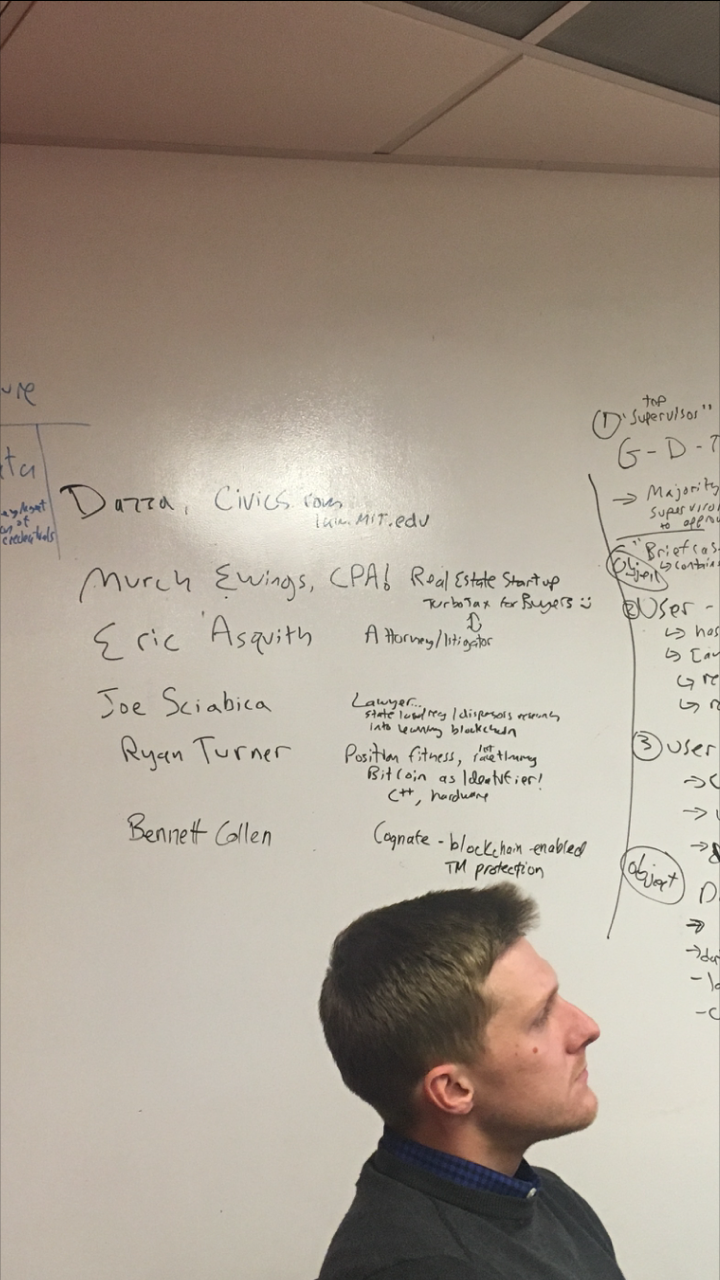 Dazza, Civics.com
law.MIT.edu
Murch Ewings, CPA! Real Estate Startup
TurboTax for Buyers
Eric Asquith Attorney/litigator
Joe Sciabica Lawyer...
state / disposals
into learning blockchain
Ryan Turner Position fitness, IoT
Bitcoin as Identifier!
C++, hardware
Bennett Collen Cognate - blockchain-enabled
TM protection
ure
ata
credentials
top
① "Supervisor"
G-D-T
→ Majority
supervisor
to
"Briefcas
Object
↳ contains
② User -
↳ has
↳
↳ re
↳
③ user
object
D